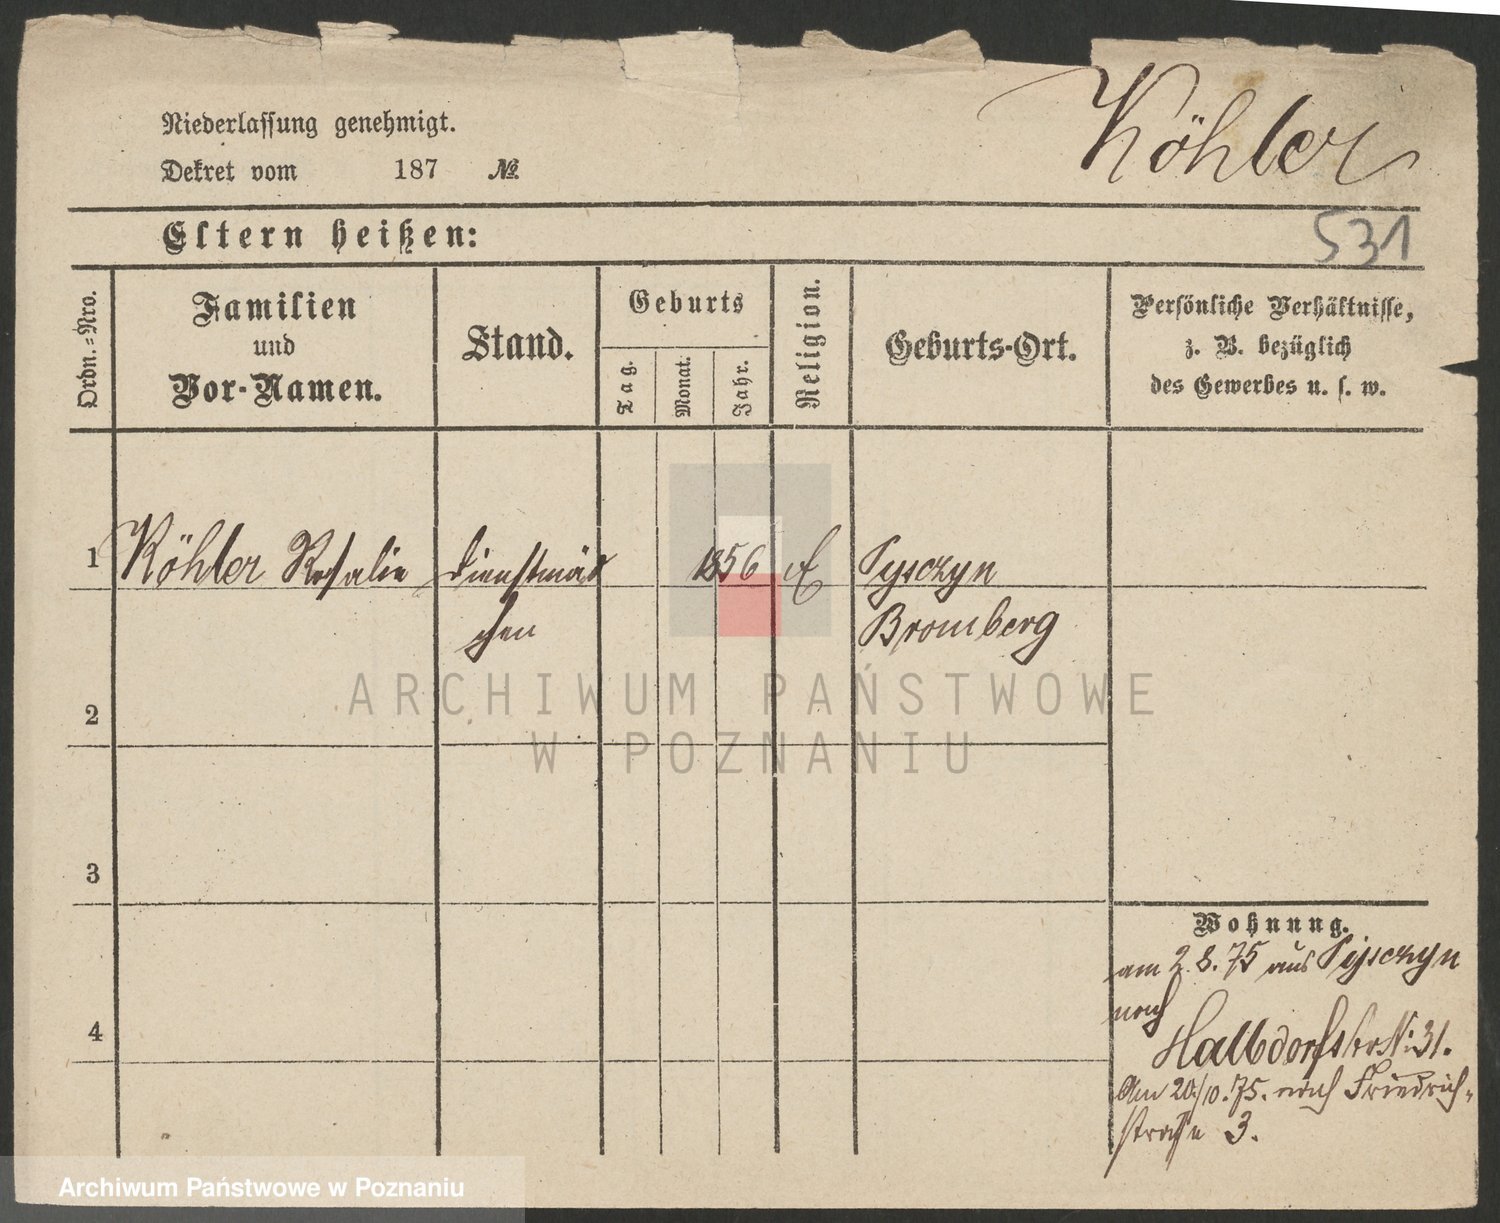 Niederlassung genehmigt.
Dekret vom 187 №
Köhler
Eltern heißen:
531
Ordn.=Nro.
Familien
und
Vor-Namen.
Stand.
Geburts
Tag.
Monat.
Jahr.
Religion.
Geburts-Ort.
Persönliche Verhältnisse,
z. B. bezüglich
des Gewerbes u. s. w.
1 Köhler Rosalie Dienstmäd 1856 Pyszczyn
chen Bromberg
2
3
4
Wohnung.
am 2.8.75 aus Pyszczyn
nach
Halbdorfstr N: 31.
Am 20/10.75. nach Friedrich-
strasse 3.
ARCHIWUM PAŃSTWOWE
W POZNANIU
Archiwum Państwowe w Poznaniu